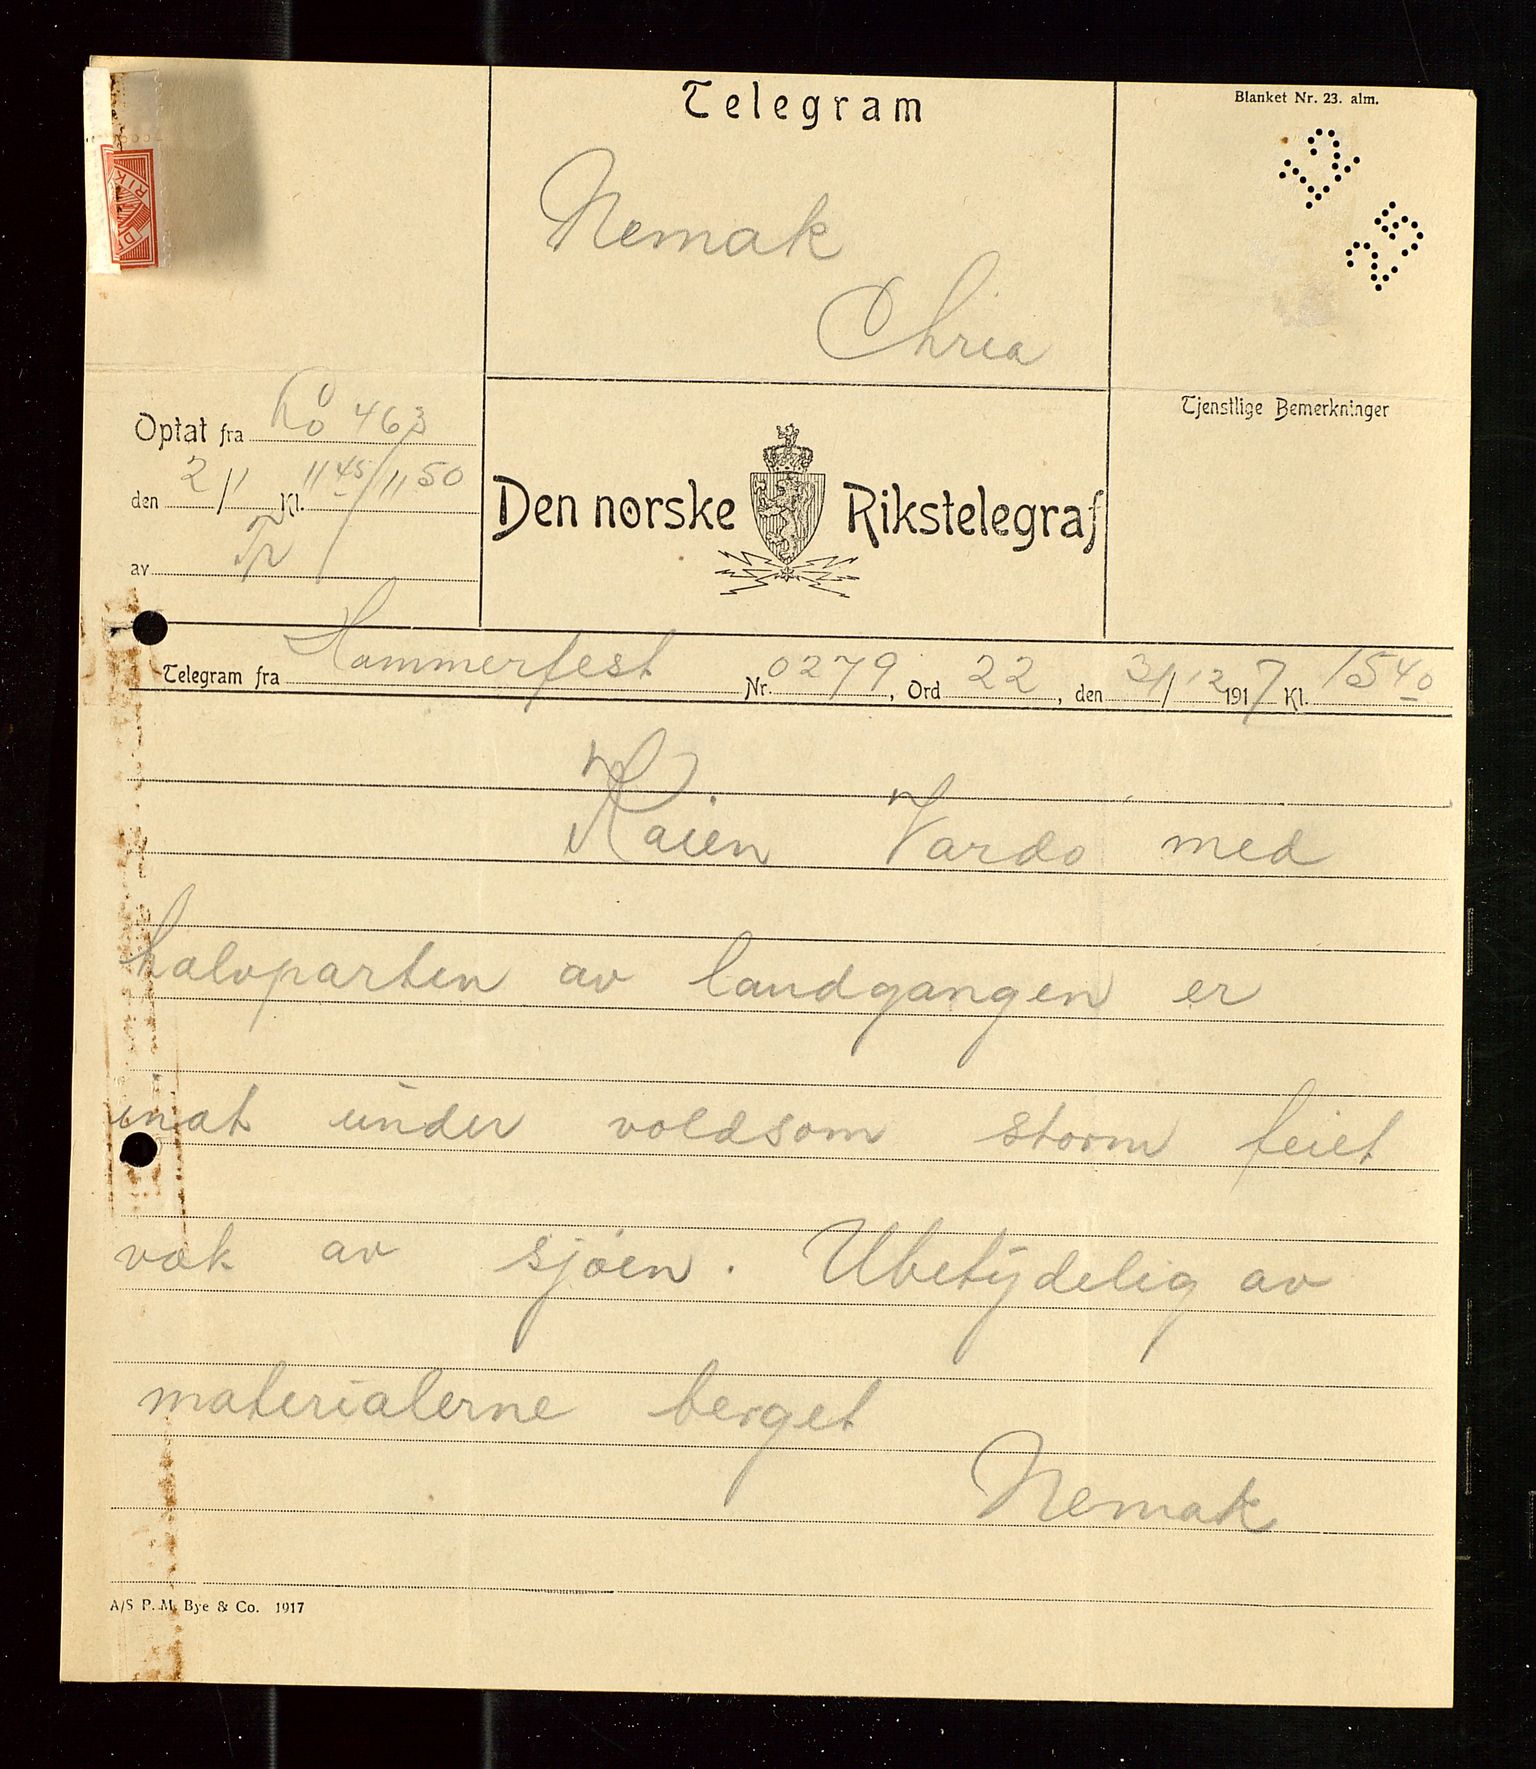 Telegram
Blanket Nr. 23. alm.
Nemak
Chria
Tjenstlige Bemerkninger
Optat fra 463
den 2/1 Kl. 11 45/11 50
av
Den norske Rikstelegraf
Telegram fra Hammerfest Nr. 0279, Ord 22, den 31/12 1917 Kl. 1540
Kaien Vardö med
halvparten av landgangen er
inat under voldsom storm feiet
væk av sjöen. Ubetydelig av
materialerne berget
Nemak
A/S P. M. Bye & Co. 1917